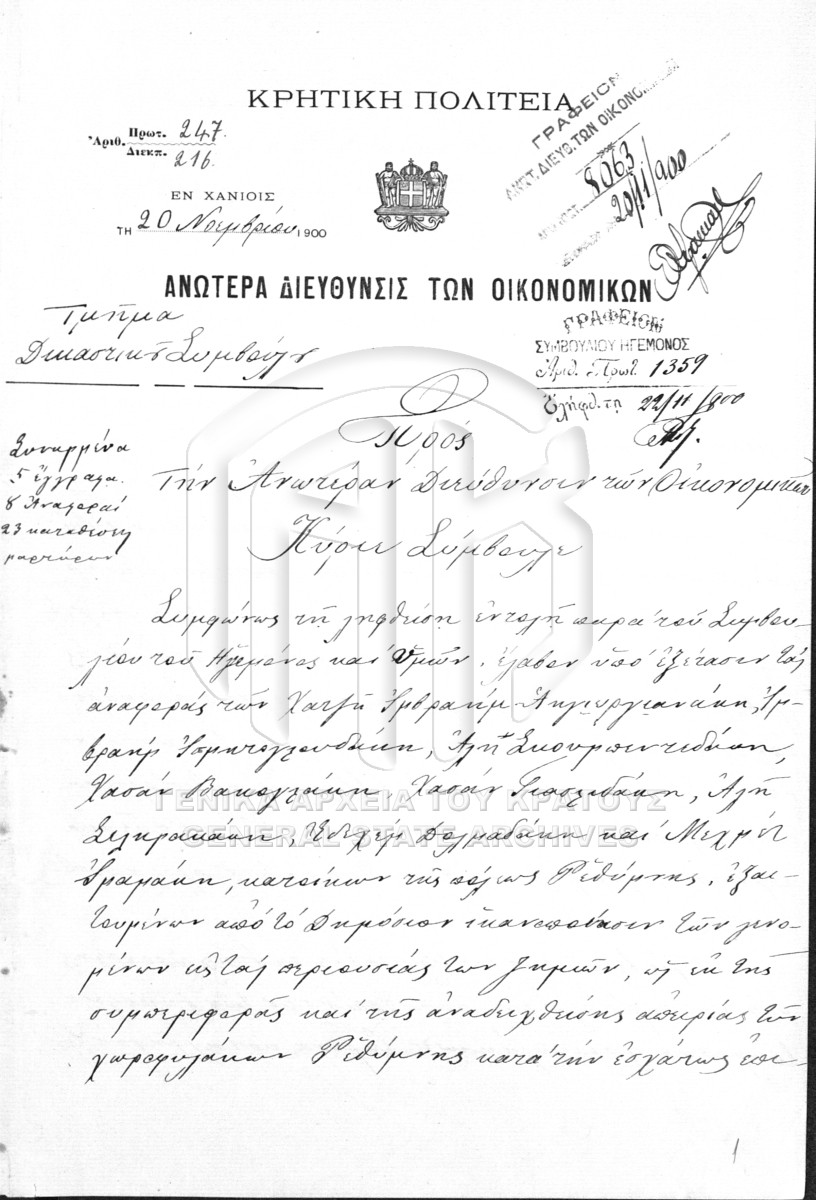 ΚΡΗΤΙΚΗ ΠΟΛΙΤΕΙΑ
Ἀριθ. Πρωτ. 247.
Διεκπ. 216.
ΕΝ ΧΑΝΙΟΙΣ
ΤΗ 20 Νοεμβρίου 1900
ΓΡΑΦΕΙΟΝ
ΑΝΩΤ. ΔΙΕΥΘ. ΤΩΝ ΟΙΚΟΝΟΜΙΚΩΝ
8063
20/11/900
ΑΝΩΤΕΡΑ ΔΙΕΥΘΥΝΣΙΣ ΤΩΝ ΟΙΚΟΝΟΜΙΚΩΝ
Τμῆμα
Δικαστικοῦ Συμβούλου
ΓΡΑΦΕΙΟΝ
ΣΥΜΒΟΥΛΙΟΥ ΗΓΕΜΟΝΟΣ
Ἀριθ. Πρωτ. 1359
Ἐλήφθ. τῃ 22/11/900
Συνημμένα
5 ἔγγραφα
8 Ἀναφοραί
23 καταθέσεις
μαρτύρων
Πρός
Τήν Ἀνωτέραν Διεύθυνσιν τῶν Οἰκονομικῶν
Κύριε Σύμβουλε
Συμφώνως τῇ ληφθείσῃ ἐντολῇ παρά τοῦ Συμβου-
λίου τοῦ Ἡγεμόνος καί Ὑμῶν, ἔλαβον ὑπό ἐξέτασιν τάς
ἀναφοράς τῶν Χατζῆ Ἰμβραήμ Ἀγιωργιανάκη, Ἰμ-
βραήμ, Ἀλῆ
Χασάν Βακογλάκη, Χασάν, Ἀλῆ
Ἐδεχέμ Δολμαδάκη καί Μεχμέτ
Ἰμαμάκη, κατοίκων τῆς πόλεως Ῥεθύμνης, ἐξαι-
τουμένων ἀπό τό Δημόσιον ἱκανοποίησιν τῶν γενο-
μένων εἰς τάς περιουσίας των ζημιῶν, ὡς ἐκ τῆς
συμπεριφορᾶς καί τῆς ἀναδειχθείσης ἀπειρίας τῶν
χωροφυλάκων Ῥεθύμνης κατά τήν ἐσχάτως ἐπι-
ΓΕΝΙΚΑ ΑΡΧΕΙΑ ΤΟΥ ΚΡΑΤΟΥΣ
GENERAL STATE ARCHIVES
1